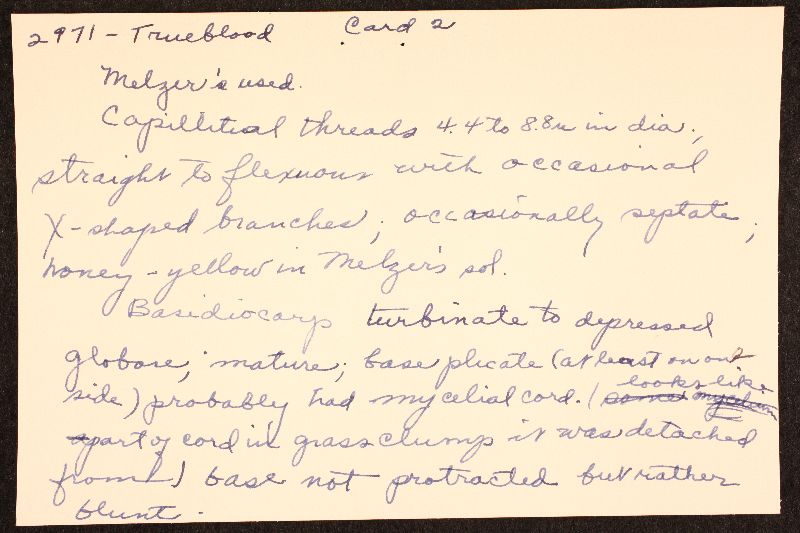 2971 - Trueblood Card 2
Melzer's used.
Capillitial threads 4.4 to 8.8u in dia.,
straight to flexuous with occasional
Y-shaped branches; occasionally septate;
honey-yellow in Melzer's sol.
Basidiocarp turbinate to depressed
globose; mature; base plicate (at least on one
side) probably had mycelial cord. (some looks like mycelium
part of cord in grass clump it was detached
from) base not protracted but rather
blunt.